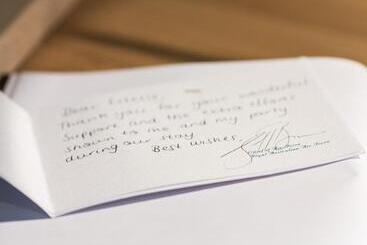 Dear Estelle,
Thank you for your wonderful
support and the extra efforts
shown to me and my party
during our stay
Best wishes,
Royal Australian Air Force